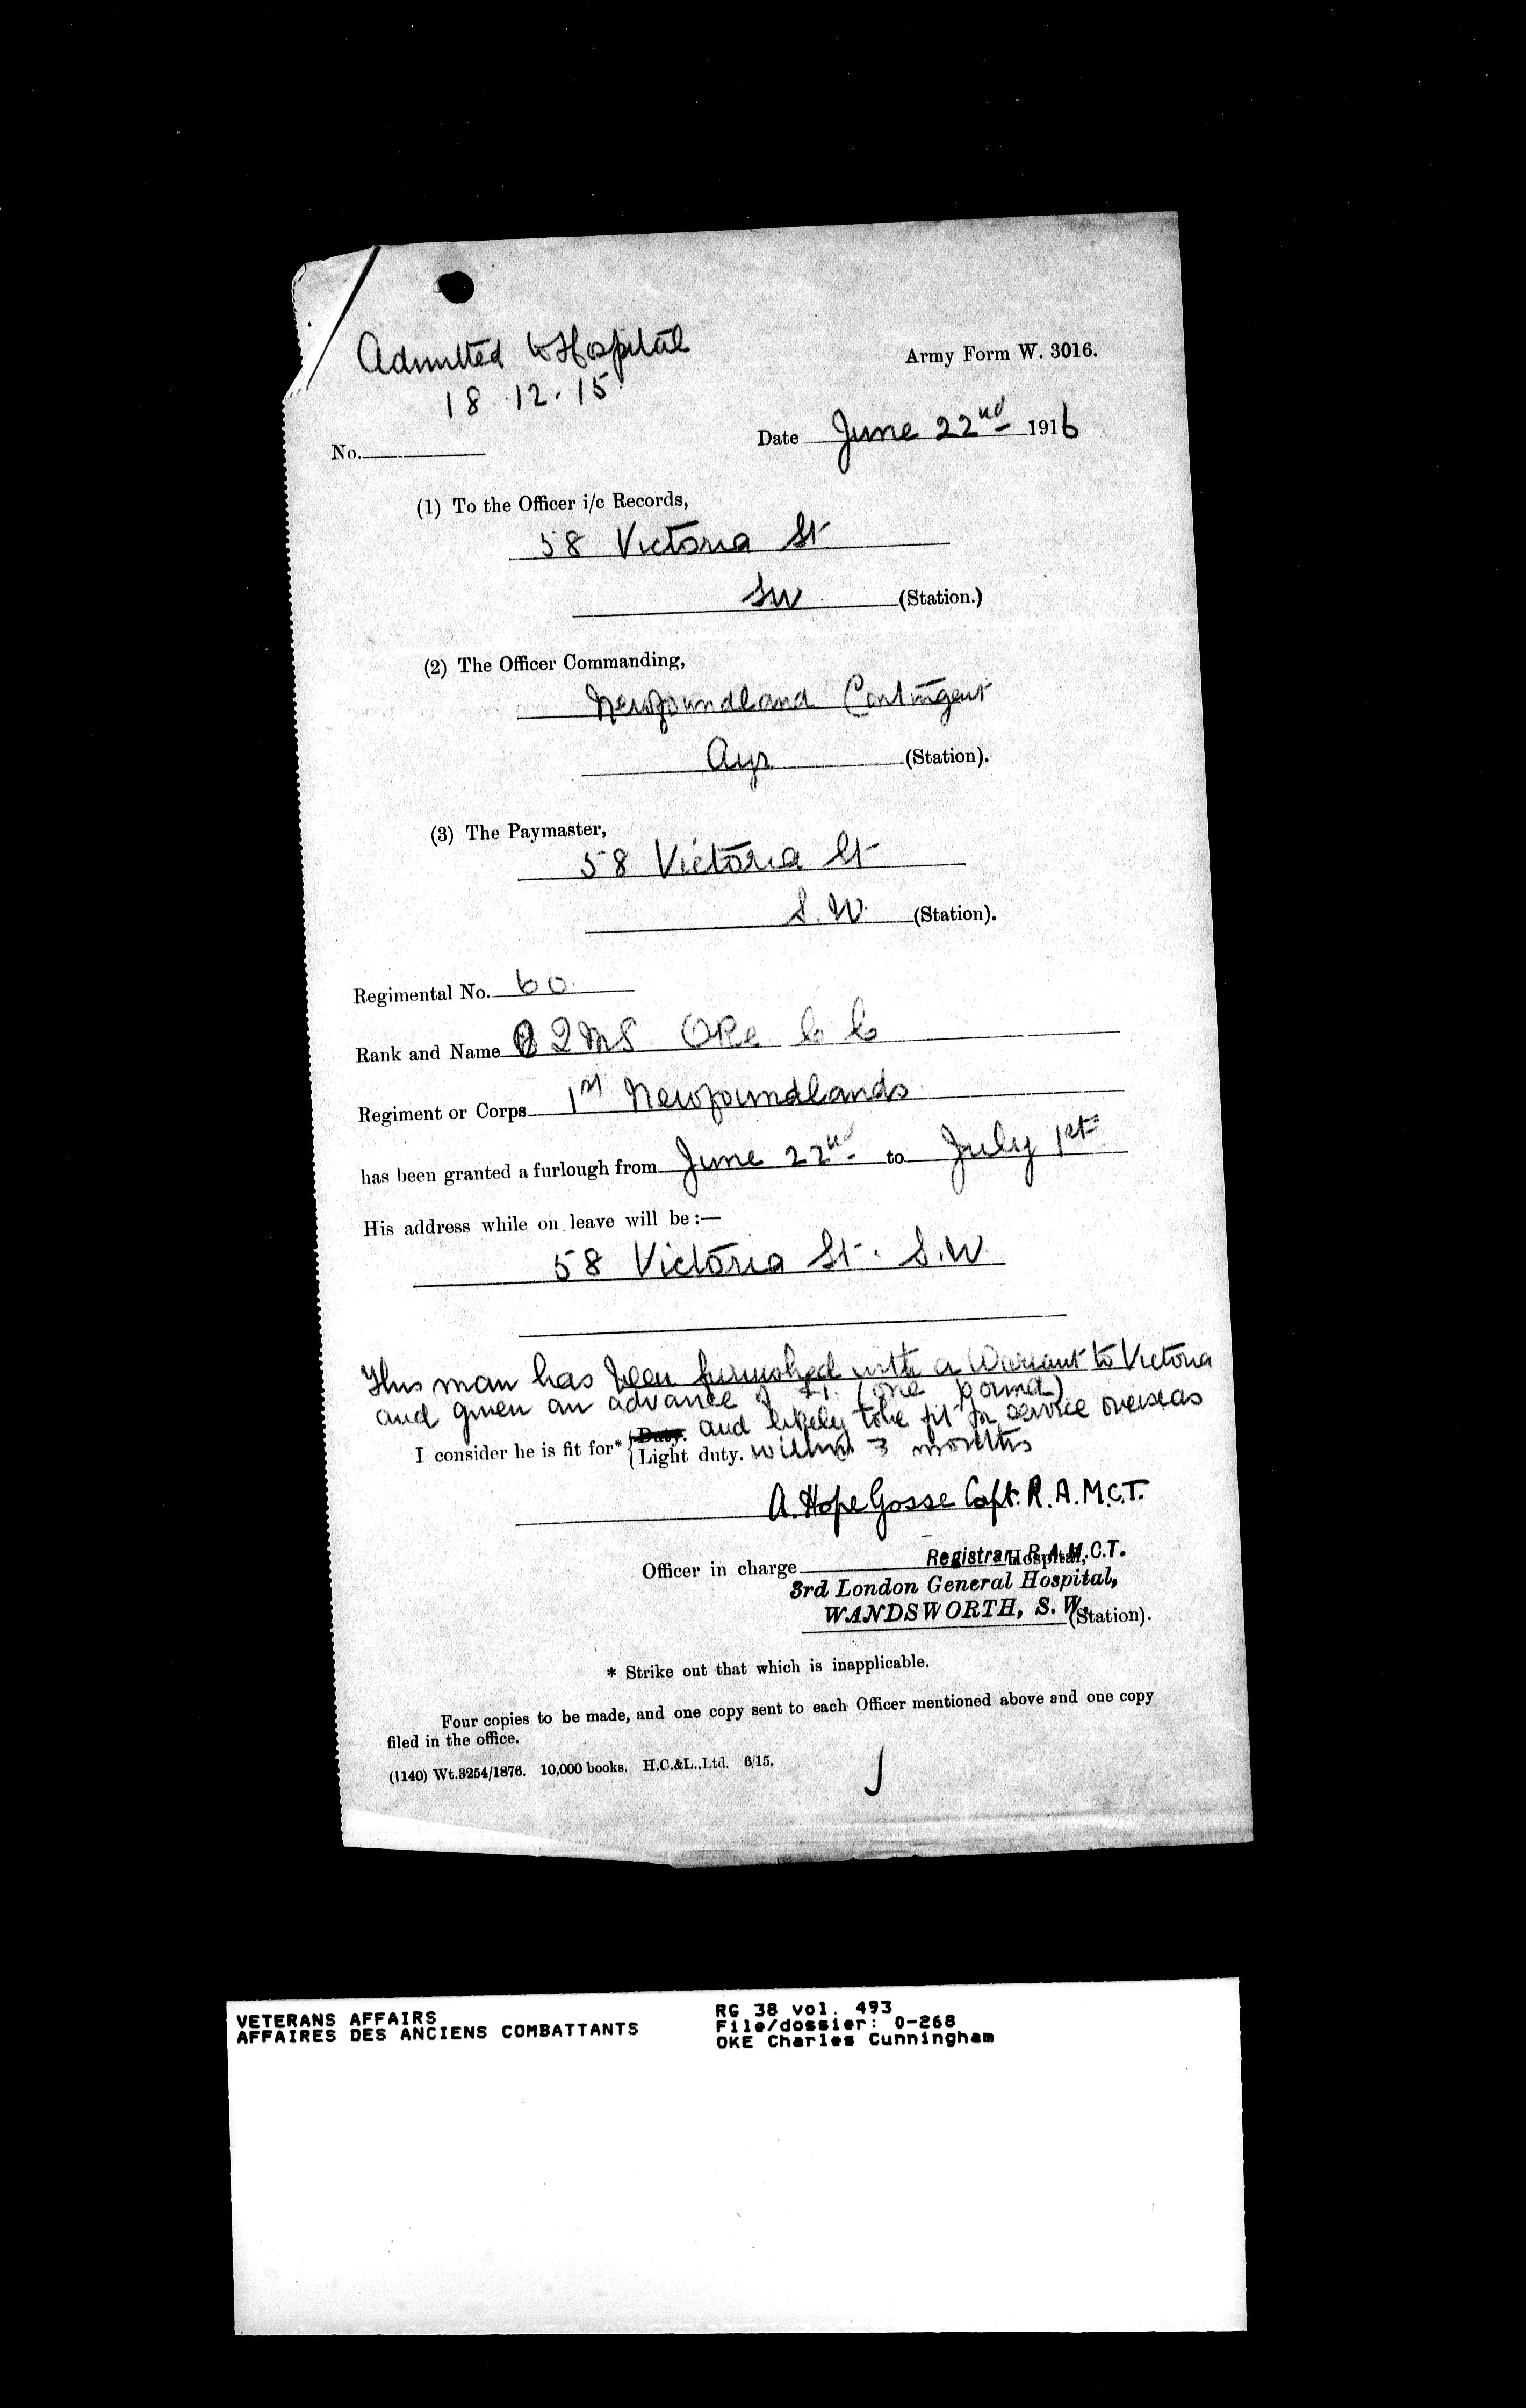 Admitted to Hospital
18.12.15
Army Form W. 3016.
No.
Date June 22nd 1916
(1) To the Officer i/c Records,
58 Victoria St
SW (Station.)
(2) The Officer Commanding,
Newfoundland Contingent
Ayr (Station).
(3) The Paymaster,
58 Victoria St
S.W. (Station).
Regimental No. 60.
Rank and Name QMS Oke C C
Regiment or Corps 1st Newfoundlands
has been granted a furlough from June 22nd to July 1st
His address while on leave will be :—
58 Victoria St. S.W
This man has been furnished with a Warrant to Victoria
and given an advance of £1. (one pound)
Duty. and likely to be fit for service overseas
I consider he is fit for* Light duty. within 3 months
A. Hope Gosse Capt. R.A.M.C.T.
Officer in charge Registrar, R.A.M.C.T. Hospital,
3rd London General Hospital,
WANDSWORTH, S. W. (Station).
* Strike out that which is inapplicable.
Four copies to be made, and one copy sent to each Officer mentioned above and one copy
filed in the office.
(1140) Wt.3254/1876. 10,000 books. H.C.&L.,Ltd. 6/15.
VETERANS AFFAIRS
AFFAIRES DES ANCIENS COMBATTANTS
RG 38 vol. 493
File/dossier: O-268
OKE Charles Cunningham